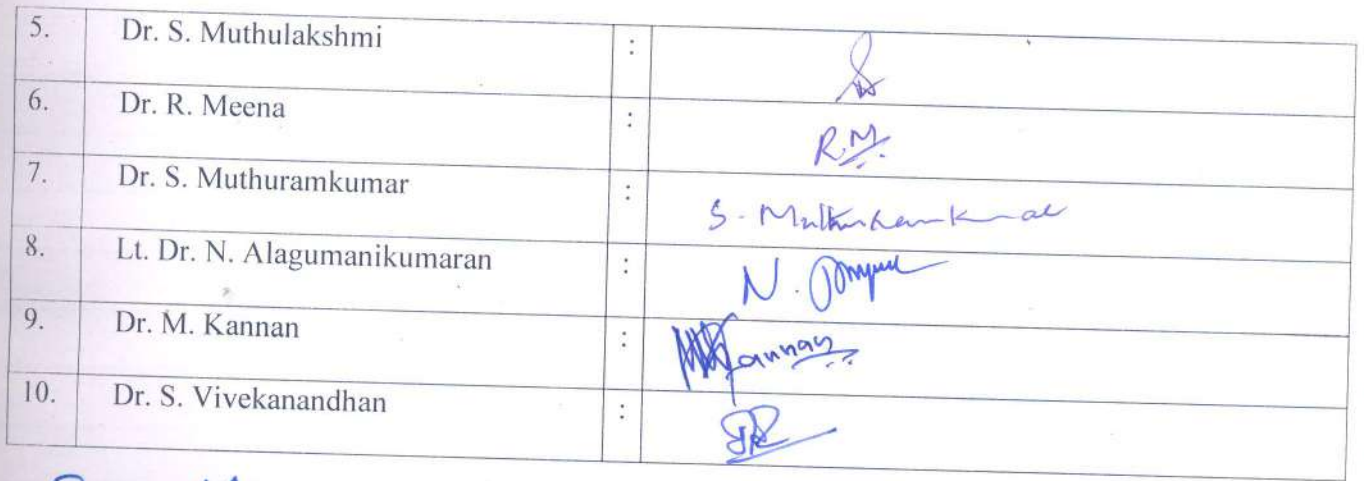 5. Dr. S. Muthulakshmi :
6. Dr. R. Meena : R.M.
7. Dr. S. Muthuramkumar : S. Muthuramkumar
8. Lt. Dr. N. Alagumanikumaran : N.
9. Dr. M. Kannan : Kannan
10. Dr. S. Vivekanandhan :